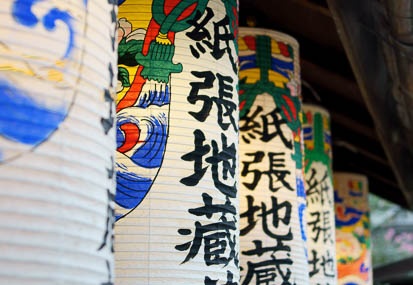 紙張地蔵
紙張地蔵
紙張地